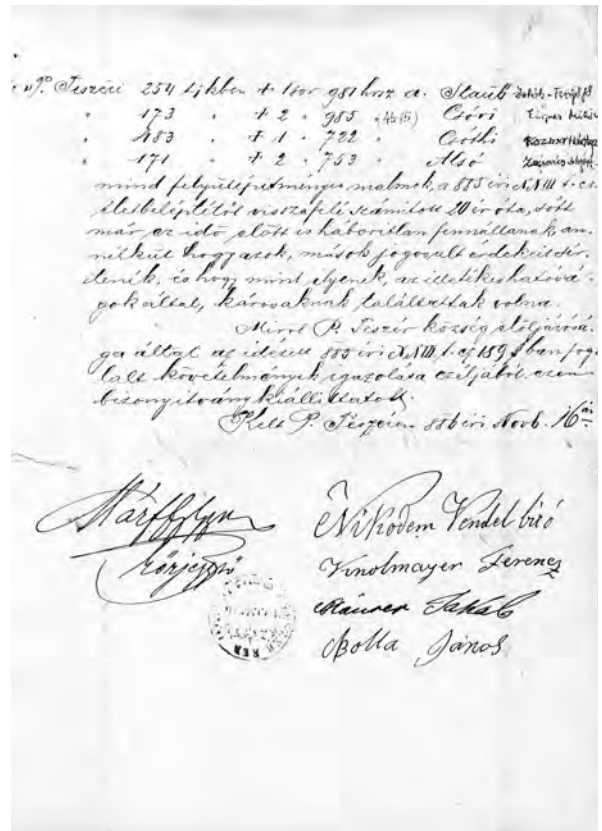 P. Teszéri 254 tjkben + 1 sor 981 hrsz a. Staub
" 173 " + 2 " 985 " Csóri
" 483 " + 1 " 722 " Csóthi
" 171 " + 2 " 753 " Alsó
mind felyülépitményes malmok, a 885 évi XXIII t. cz.
életbeléptétől visszafelé számított 20 év óta, sőtt
már ez idő előtt is háboritlan fennállanak, an-
nélkül hogy azok, mások jogosult érdekeit sér-
tenék, és hogy, mint olyanok, az illetékes hatósá-
gok által, károsaknak találtattak volna.
Miről P. Teszér község elöljárósá-
ga által az idézett 885 évi XXIII. t. cz 189 §ban fog-
lalt követelmények igazolása czéljából ezen
bizonyitvány kiállittatott.
Kelt P. Teszéren 886 évi Novb. 16án
körjegyző
Nikodem Vendel biró
Knolmayer Ferencz
Mäurer Jakab
Bolla János